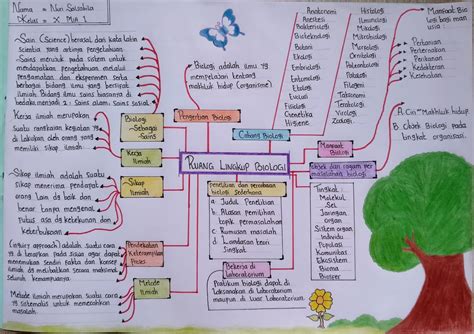 Nama = Nuri Salsabila
Kelas = X MIA 1
-Sain (Science) berasal dari kata latin
scientia yang artinya pengetahuan
-Sains merujuk pada sistem untuk
mendapatkan pengetahuan melalui
pengamatan dan eksperimen serta
berbagai bidang ilmu yang bersifat
ilmiah. Bidang ilmu sains biasanya di
bedakan menjadi 2 : Sains alam, Sains sosial
Kerja ilmiah merupakan
Suatu rangkaian kegiatan yg
di lakukan oleh orang yang
memiliki sikap ilmiah
-Sikap ilmiah adalah Suatu
sikap menerima pendapat
orang lain dg baik dan
benar tanpa mengenal
putus asa dg ketekunan dan
keterbukaan
(inquiry approach) adalah suatu cara
yg di terapkan pada siswa agar dapat
menemukan sendiri fakta dan konsep
ilmiah, dg melibatkan secara maksimal
seluruh kemampuanya.
Metode ilmiah merupakan suatu cara
yg sistematis untuk memecahkan
masalah.
Biologi
-Sebagai
-Sains
Kerja
Ilmiah
Sikap
Ilmiah
Pendekatan
Keterampilan
Proses
Metode
Ilmiah
Biologi adalah ilmu yg
mempelajari tentang
makhluk hidup (organisme)
Pengertian Biologi
Cabang Biologi
RUANG LINGKUP BIOLOGI
Anatomi
Anestesi
Bakteriologi
Bioteknologi
Botani
Ekologi
Embriologi
Entomologi
Evolusi
Fisiologi
Genetika
Higiene
Histologi
Imunologi
Mikologi
Ornitologi
Patologi
Taksonomi
Teratologi
Virologi
Zoologi
Manfaat Bio
logi bagi manu
sia :
Pertanian
Peternakan
Kedokteran
Kesehatan
Manfaat
Biologi
A. Ciri-Makhluk hidup
B. Objek Biologi pada
tingkat organisasi.
Objek dan ragam per
masalahan biologi
Tingkat :
Molekul
Sel
Jaringan
organ
Sistem organ
Individu
Populasi
Komunitas
Ekosistem
Bioma
Biosfer
penelitian dan percobaan
biologi sederhana
a Judul Penelitian
b Alasan pemilihan
topik permasalahan
c Rumusan masalah
d Landasan teori
Singkat.
Bekerja di
Laboratorium
Praktikum biologi dapat di
laksanakan di laboratorium
maupun di luar laboratorium